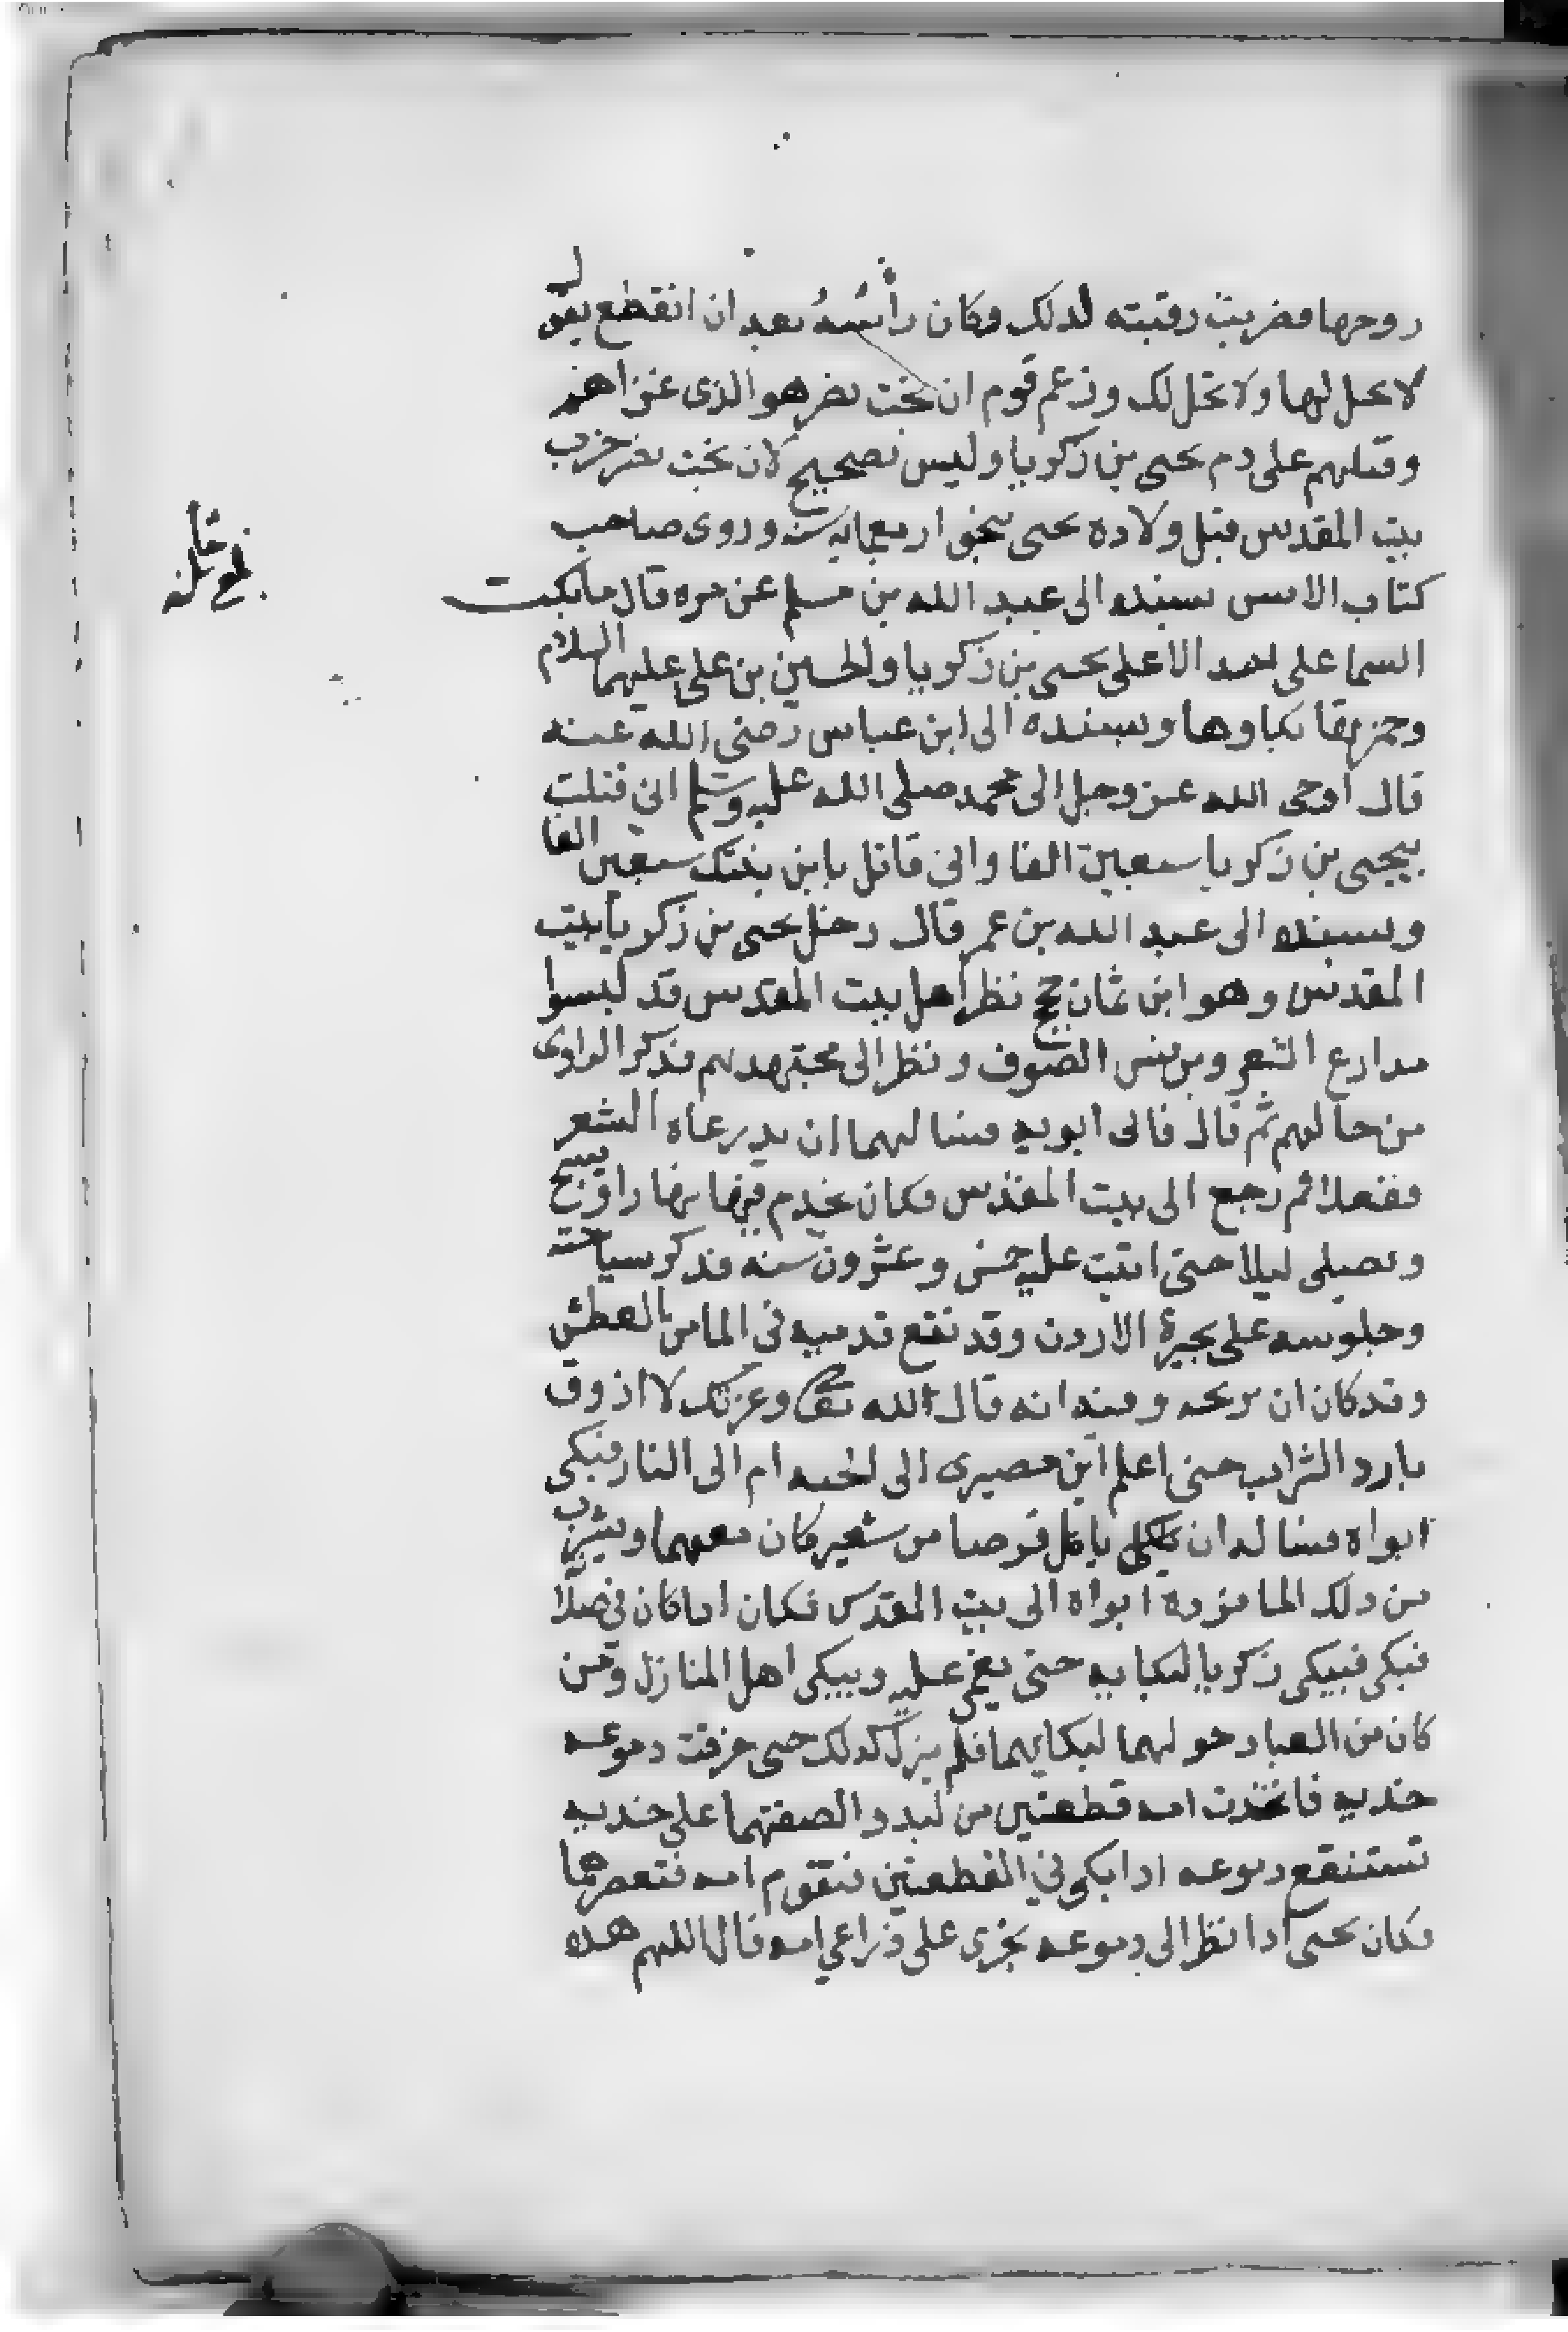 روحها فضربت رقبته لذلك وكان رأسُهُ بعد ان انقطع يقول
لا يحل لها ولا تحل لك وزعم قوم ان بخت نصر هو الذى غزاهم
وقتلهم على دم يحيى بن زكريا وليس بصحيح لان بخت نصر خرب
بيت المقدس قبل ولادة يحيى بنحو اربعمايه سنه وروى صاحب
كتاب الانس بسنده الى عبد الله بن مسلم عن مره قال ما بكت
السما على احد الا على يحيى بن زكريا والحسين بن على عليهما السلام
وحمرتها بكاوها وبسنده الى ابن عباس رضى الله عنه
قال اوحى الله عز وجل الى محمد صلى الله عليه وسلم انى قتلت
بيحيى بن زكريا سبعين الفا وانى قاتل بابن بنتك سبعين الفا
وبسنده الى عبد الله بن عمر قال دخل يحيى بن زكريا بيت
المقدس وهو ابن ثمان حجج نظر اهل بيت المقدس قد لبسوا
مدارع الشعر وبرنس الصوف ونظر الى مجتهدهم فذكر الراوى
من حالهم ثم قال فاتى ابويه فسالهما ان يدرعاه الشعر
ففعلا ثم رجع الى بيت المقدس فكان يخدم فيها نهارا ويسبح
ويصلى ليلا حتى اتت عليه خمس وعشرون سنه فذكر سياحته
وجلوسه على بحيرة الاردن وقد نقع قدميه فى الما من العطش
وقد كان ان يذبحه وفيه انه قال الله تعالى وعزتك لا اذوق
بارد الشراب حتى اعلم اين مصيرى الى الجنه ام الى النار فبكى
ابواه فسالاه ان ياكل قرصا من شعير كان معهما ويشرب
من ذلك الما فرده ابواه الى بيت المقدس فكان اذا كان فى صلا
فبكى فيبكى زكريا لبكايه حتى يغمى عليه ويبكى اهل المنازل ومن
كان من العباد حولهما لبكايهما فلم يزل كذلك حتى خرقت دموعه
خديه فاتخذت امه قطعتين من لبد والصقتهما على خديه
تستنقع دموعه اذا بكى فى القطعتين فتقوم امه فتعصرهما
فكان يحيى اذا نظر الى دموعه تجرى على ذراعي امه قال اللهم هذه